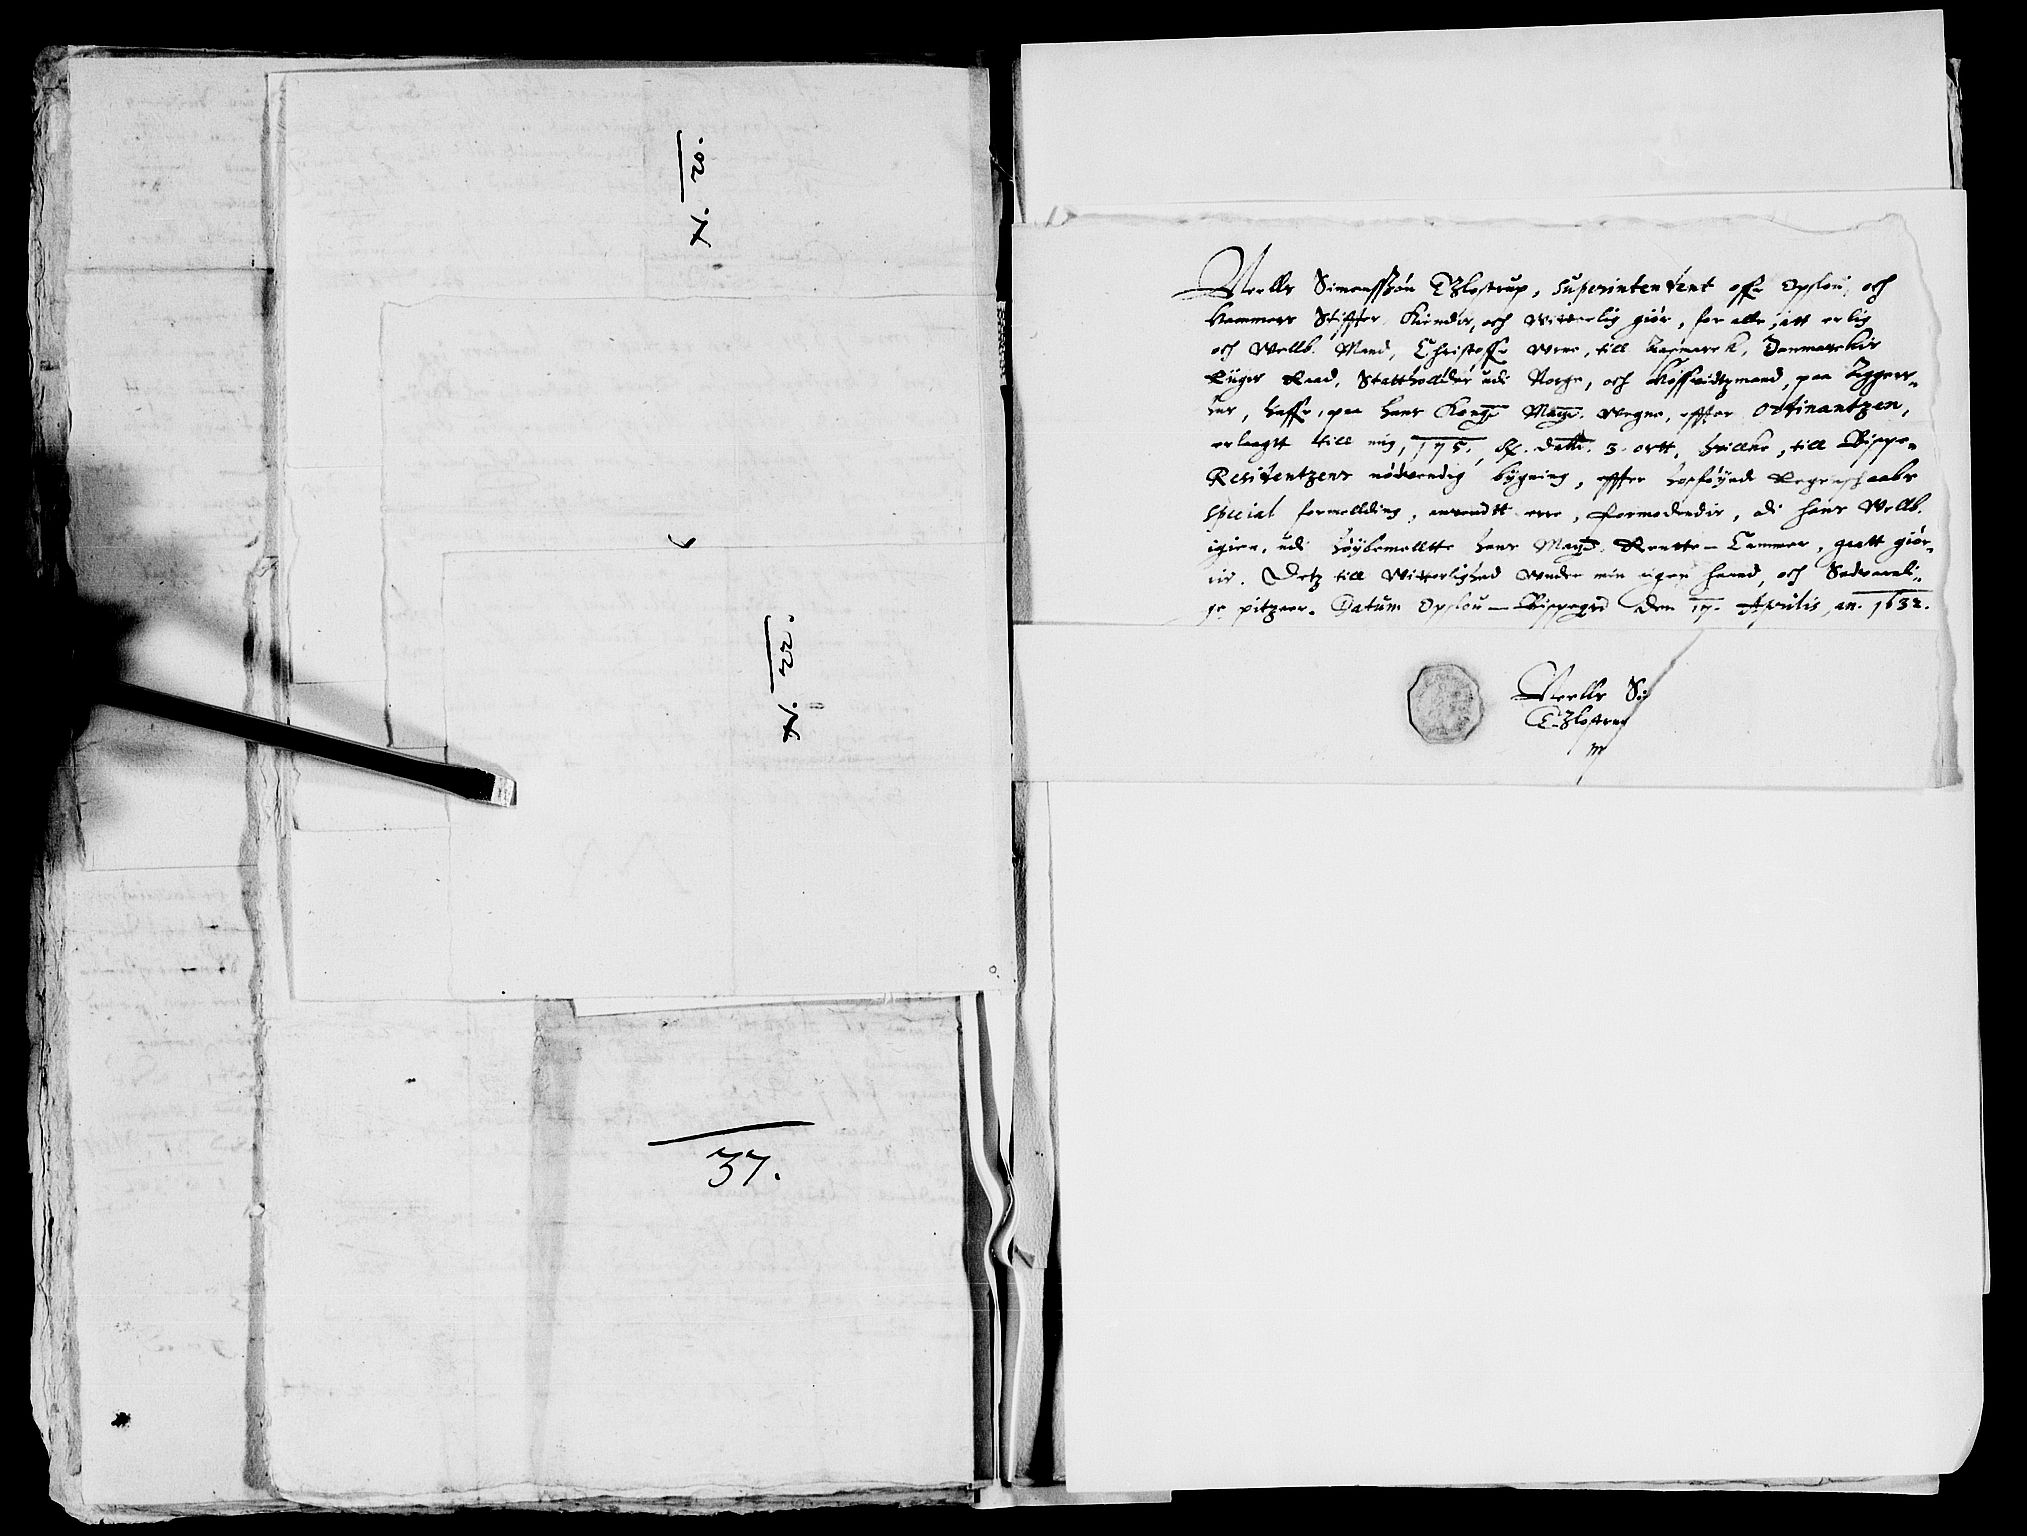 N. 20.
N. 22.
37.
Niells Simenssøn Glostrup, Superintendent offr Opslou, och
Hammers Stiffter, Kiender, och witterlig giør, for alle, att erlig
och Wellb. Mand, Christoffr Urne, till Aasmarck, Danmarckis
Riigis Raad, Stattholder udi Norge, och Høffvidtzmand, paa Aggers-
hus, haffr, paa hans Kong. May. wegne, effter Ordinantzen,
erlagtt till mig, 175, 3. ortt, huilke, till Bispe-
Residentzens nødvendig bygning, effter hosføyede Regenschaabs
special formellding, anvendtt erre, Formodendis, at hans Wellb.
igien, udi høybemeltte hans May. Rentte-Cammer, gott giør-
is. Detz till Witterlighed Under min egen haand, och Sedvaanli-
ge pitzeer. Datum Opslou-Bispegrd den 17. Aprilis, an. 1632.
Niells Si
Glostrup